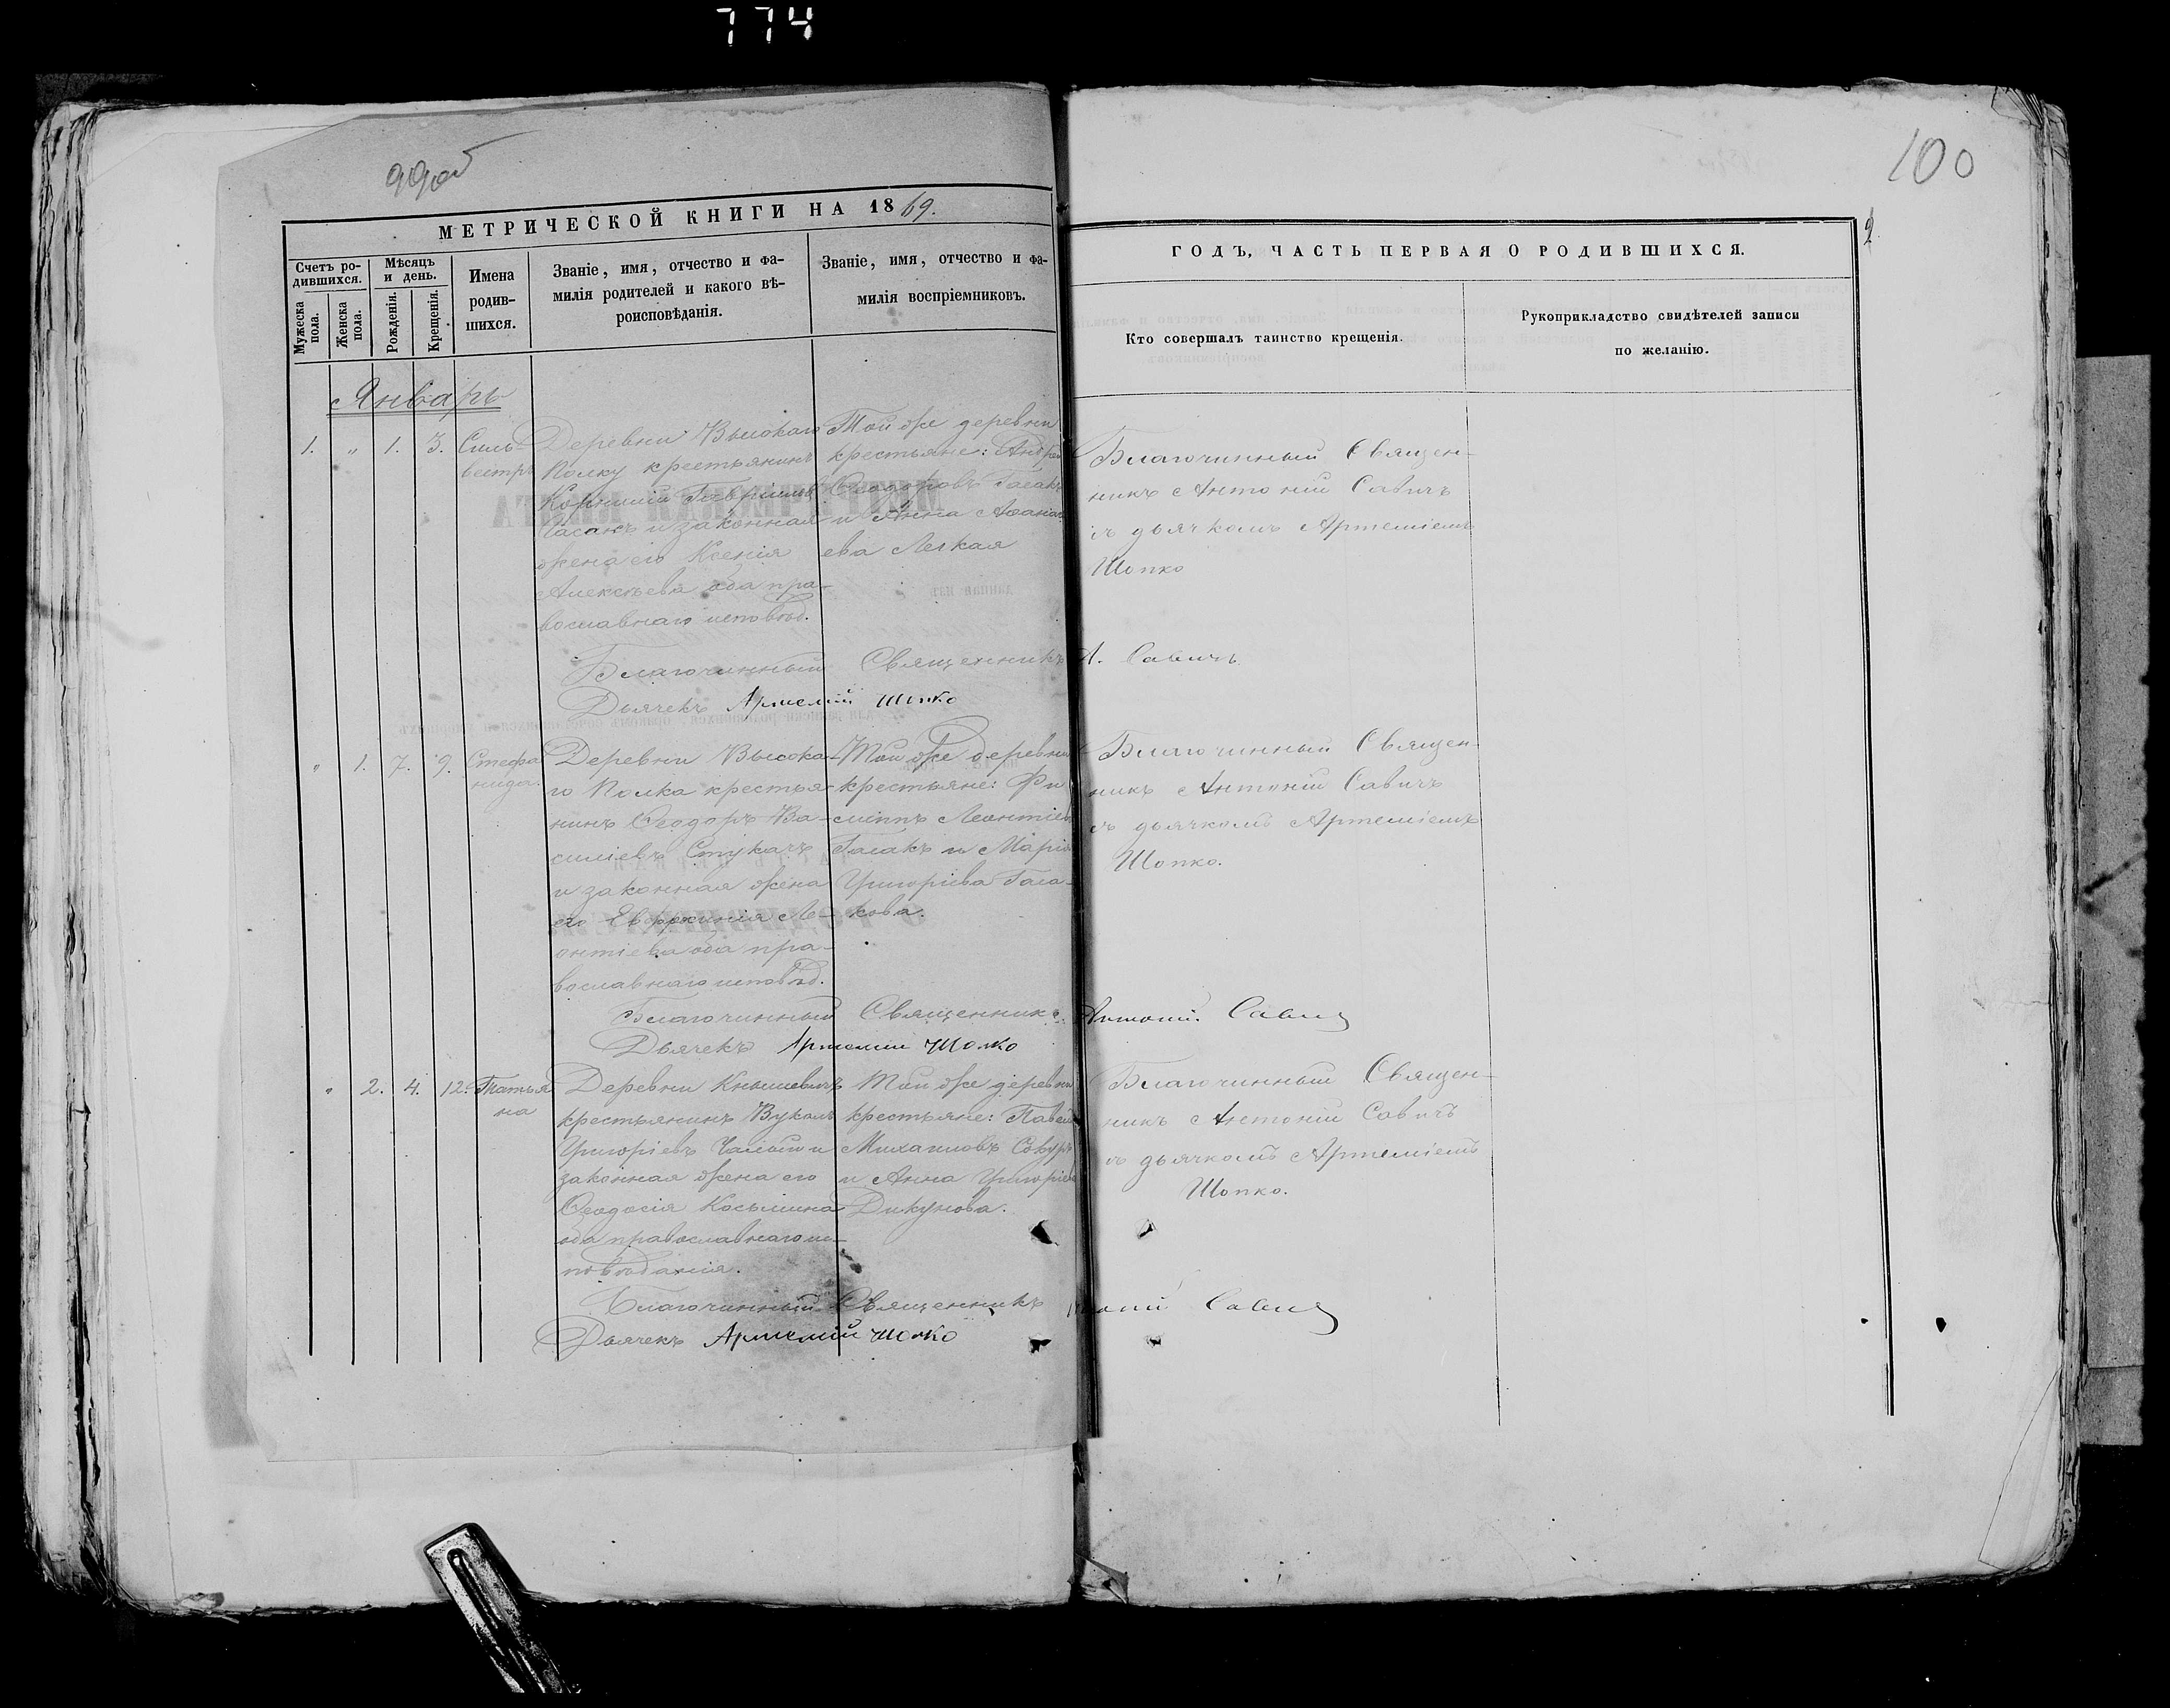 774
99об
100
2
МЕТРИЧЕСКОЙ КНИГИ НА 1869.
ГОДЪ, ЧАСТЬ ПЕРВАЯ О РОДИВШИХСЯ.
Счетъ ро-
дившихся.
Мужеска пола.
Женска пола.
Мѣсяцъ
и день.
Рожденія.
Крещенія.
Имена
родив-
шихся.
Званіе, имя, отчество и фа-
милія родителей и какого вѣ-
роисповѣданія.
Званіе, имя, отчество и фа-
милія воспріемниковъ.
Кто совершалъ таинство крещенія.
Рукоприкладство свидѣтелей записи
по желанію.
Январь
1. „ 1. 3. Силь-
вестръ
Деревни Высокаго
Полку крестьянинъ
Корнилій Гавріиловъ
и законная
жена его Ксенія
Алексѣева оба пра-
вославнаго исповѣд.
Той же деревни
крестьяне: Андрей
Ѳеодоровъ Гасакъ
и Анна Аѳанась
ева Легкая
Благочинный Священ-
никъ Антоній Савичъ
съ дьячкомъ Артеміемъ
Шопко
Благочинный Священникъ А. Савичъ
Дьячекъ Артемій Шопко
„ 1. 7. 9. Стефа
нида.
Деревни Высока-
го Полка крестья-
нинъ Ѳеодоръ Ва-
силіевъ Стукачъ
и законная жена
его Евфросинія Ле-
онтіева оба пра-
вославнаго исповѣд.
Той же деревни
крестьяне: Фи
липпъ Леонтіев
Гасакъ и Марія
Григоріева Гаса-
кова.
Благочинный Священ-
никъ Антоній Савичъ
съ дьячкомъ Артеміемъ
Шопко.
Благочинный Священникъ Антоній Савичъ
Дьячекъ Артемій Шопко
„ 2. 4. 12. Татья
на
Деревни Кнышевичъ
крестьянинъ Вуколъ
Григоріевъ и
законная жена его
Ѳеодосія Косьмина
оба православнаго ис-
повѣданія.
Той же деревни
крестьяне: Павелъ
Михаиловъ
и Анна Григоріева
Дикунова.
Благочинный Священ-
никъ Антоній Савичъ
съ дьячкомъ Артеміемъ
Шопко.
Благочинный Священникъ Антоній Савичъ
Дьячекъ Артемій Шопко